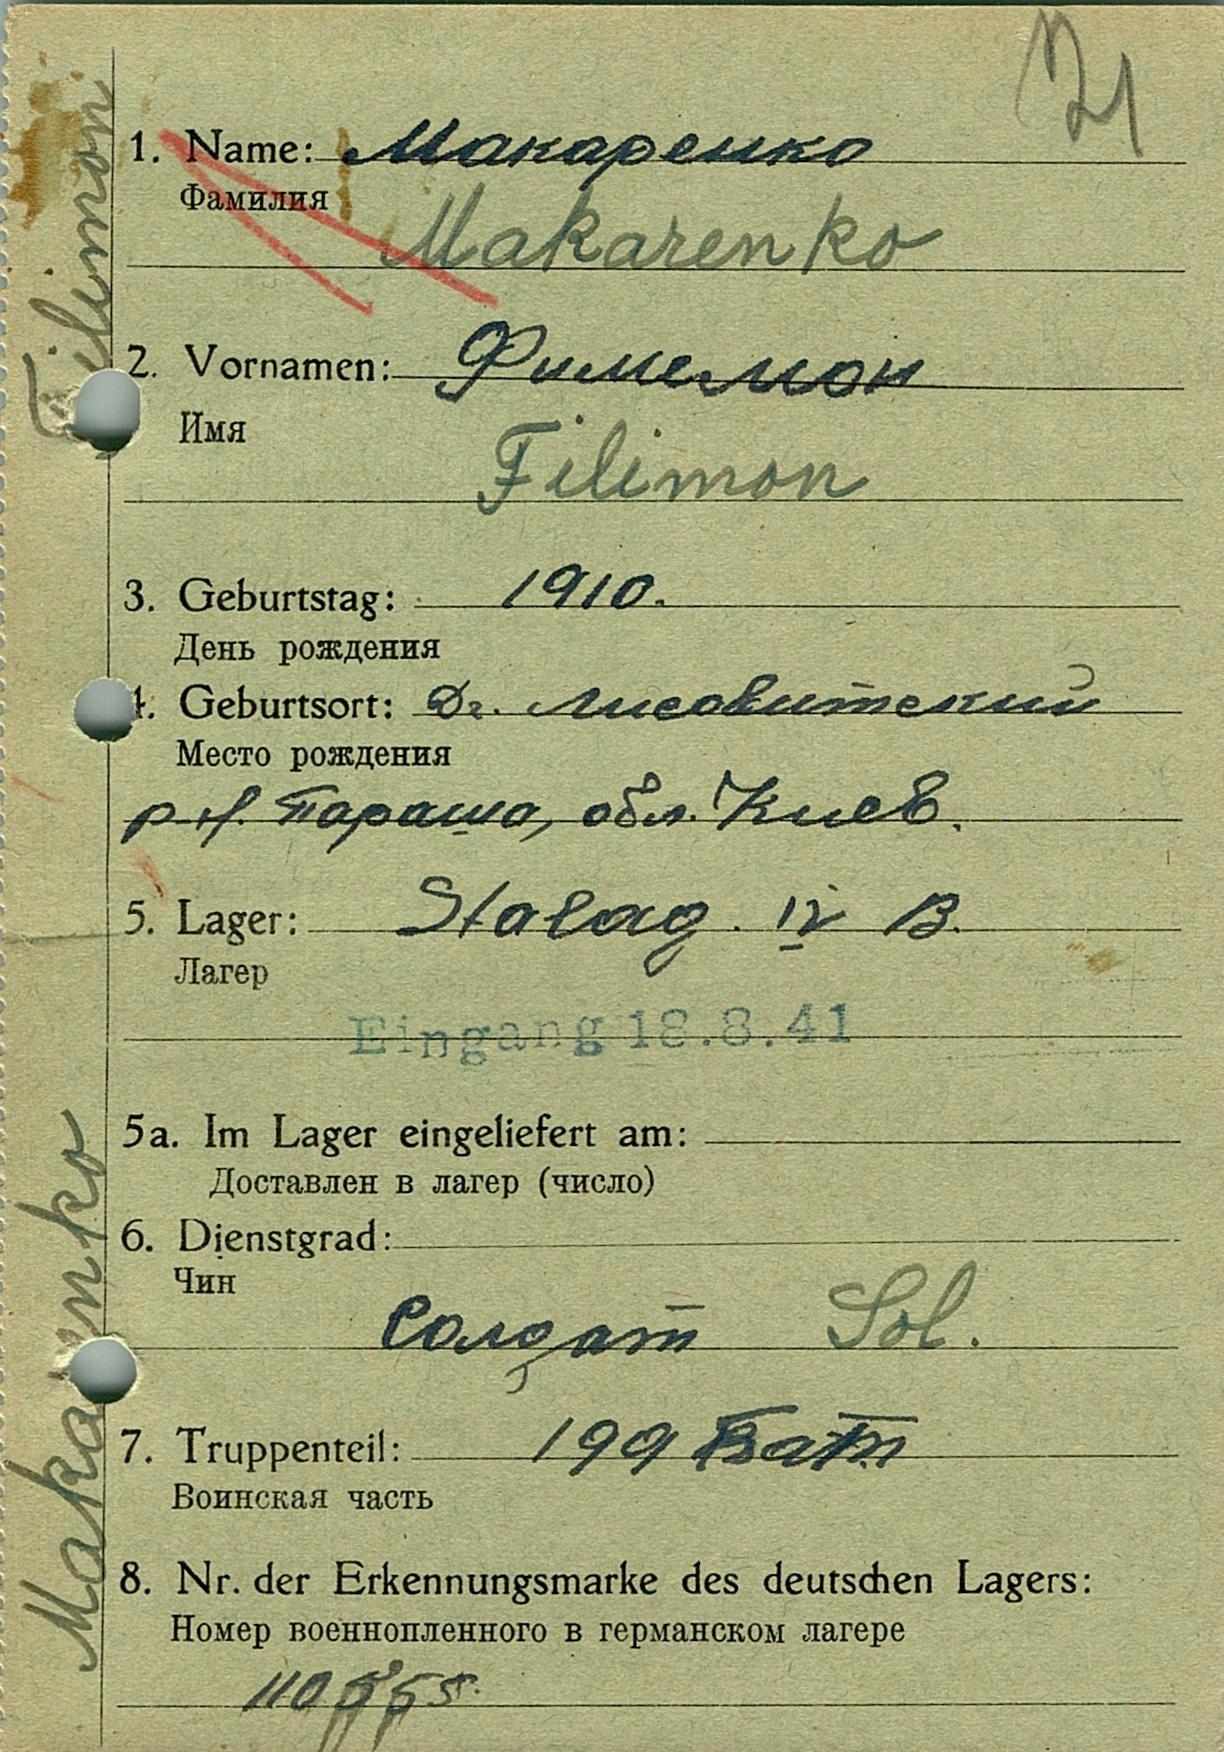 21
1. Name: Макаренко
Фамилия
Makarenko
2. Vornamen: Филемон
Имя
Filimon
3. Geburtstag: 1910.
День рождения
4. Geburtsort: Дг. Лисовитский
Место рождения
р-н. Тараша, обл. Киев.
5. Lager: Stalag. IV B.
Лагер
Eingang 18.8.41
5a. Im Lager eingeliefert am:
Доставлен в лагер (число)
6. Dienstgrad:
Чин
Солдат Sol.
7. Truppenteil: 199 Бат
Воинская часть
8. Nr. der Erkennungsmarke des deutschen Lagers:
Номер военнопленного в германском лагере
110555.
Makarenko Filimon